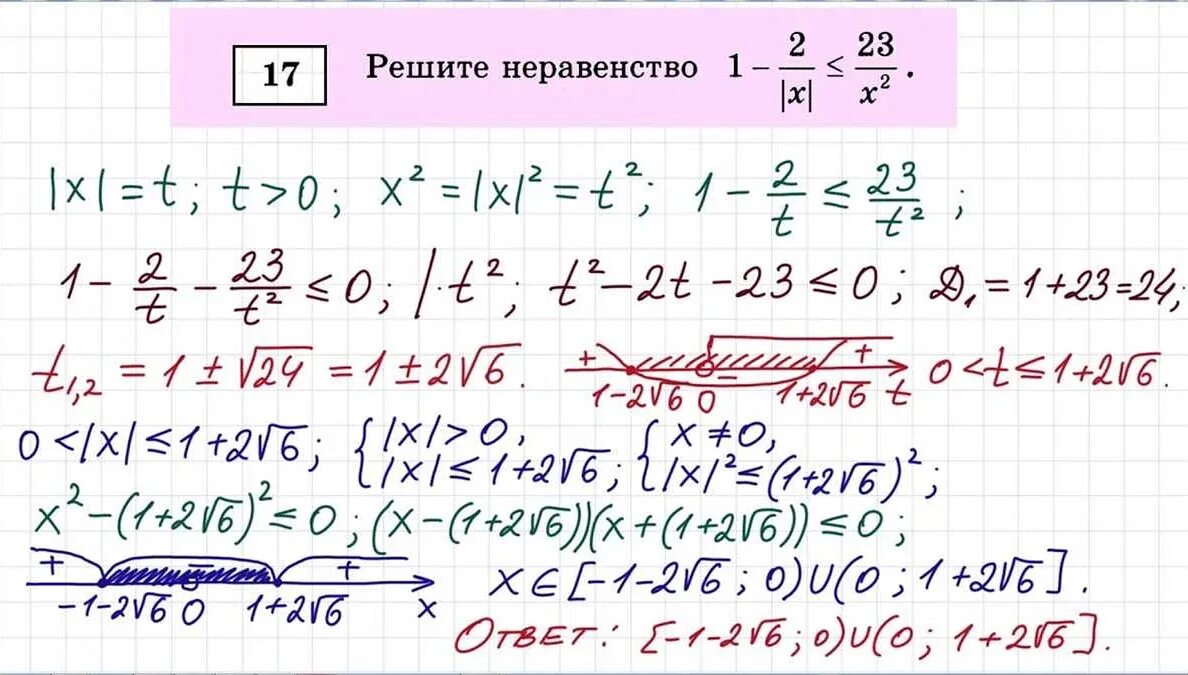 17 Решите неравенство 1 − 2/|x| ≤ 23/x².
|x| = t; t > 0; x² = |x|² = t²; 1 − 2/t ≤ 23/t²;
1 − 2/t − 23/t² ≤ 0; |·t²; t² − 2t − 23 ≤ 0; D₁ = 1 + 23 = 24;
t₁,₂ = 1 ± √24 = 1 ± 2√6. + − + 1−2√6 0 1+2√6 t 0 < t ≤ 1 + 2√6.
0 < |x| ≤ 1 + 2√6; { |x| > 0, |x| ≤ 1 + 2√6; { x ≠ 0, |x|² ≤ (1 + 2√6)²;
x² − (1 + 2√6)² ≤ 0; (x − (1 + 2√6))(x + (1 + 2√6)) ≤ 0;
+ − + −1−2√6 0 1+2√6 x x ∈ [−1−2√6; 0) ∪ (0; 1+2√6].
Ответ: [−1−2√6; 0) ∪ (0; 1+2√6].